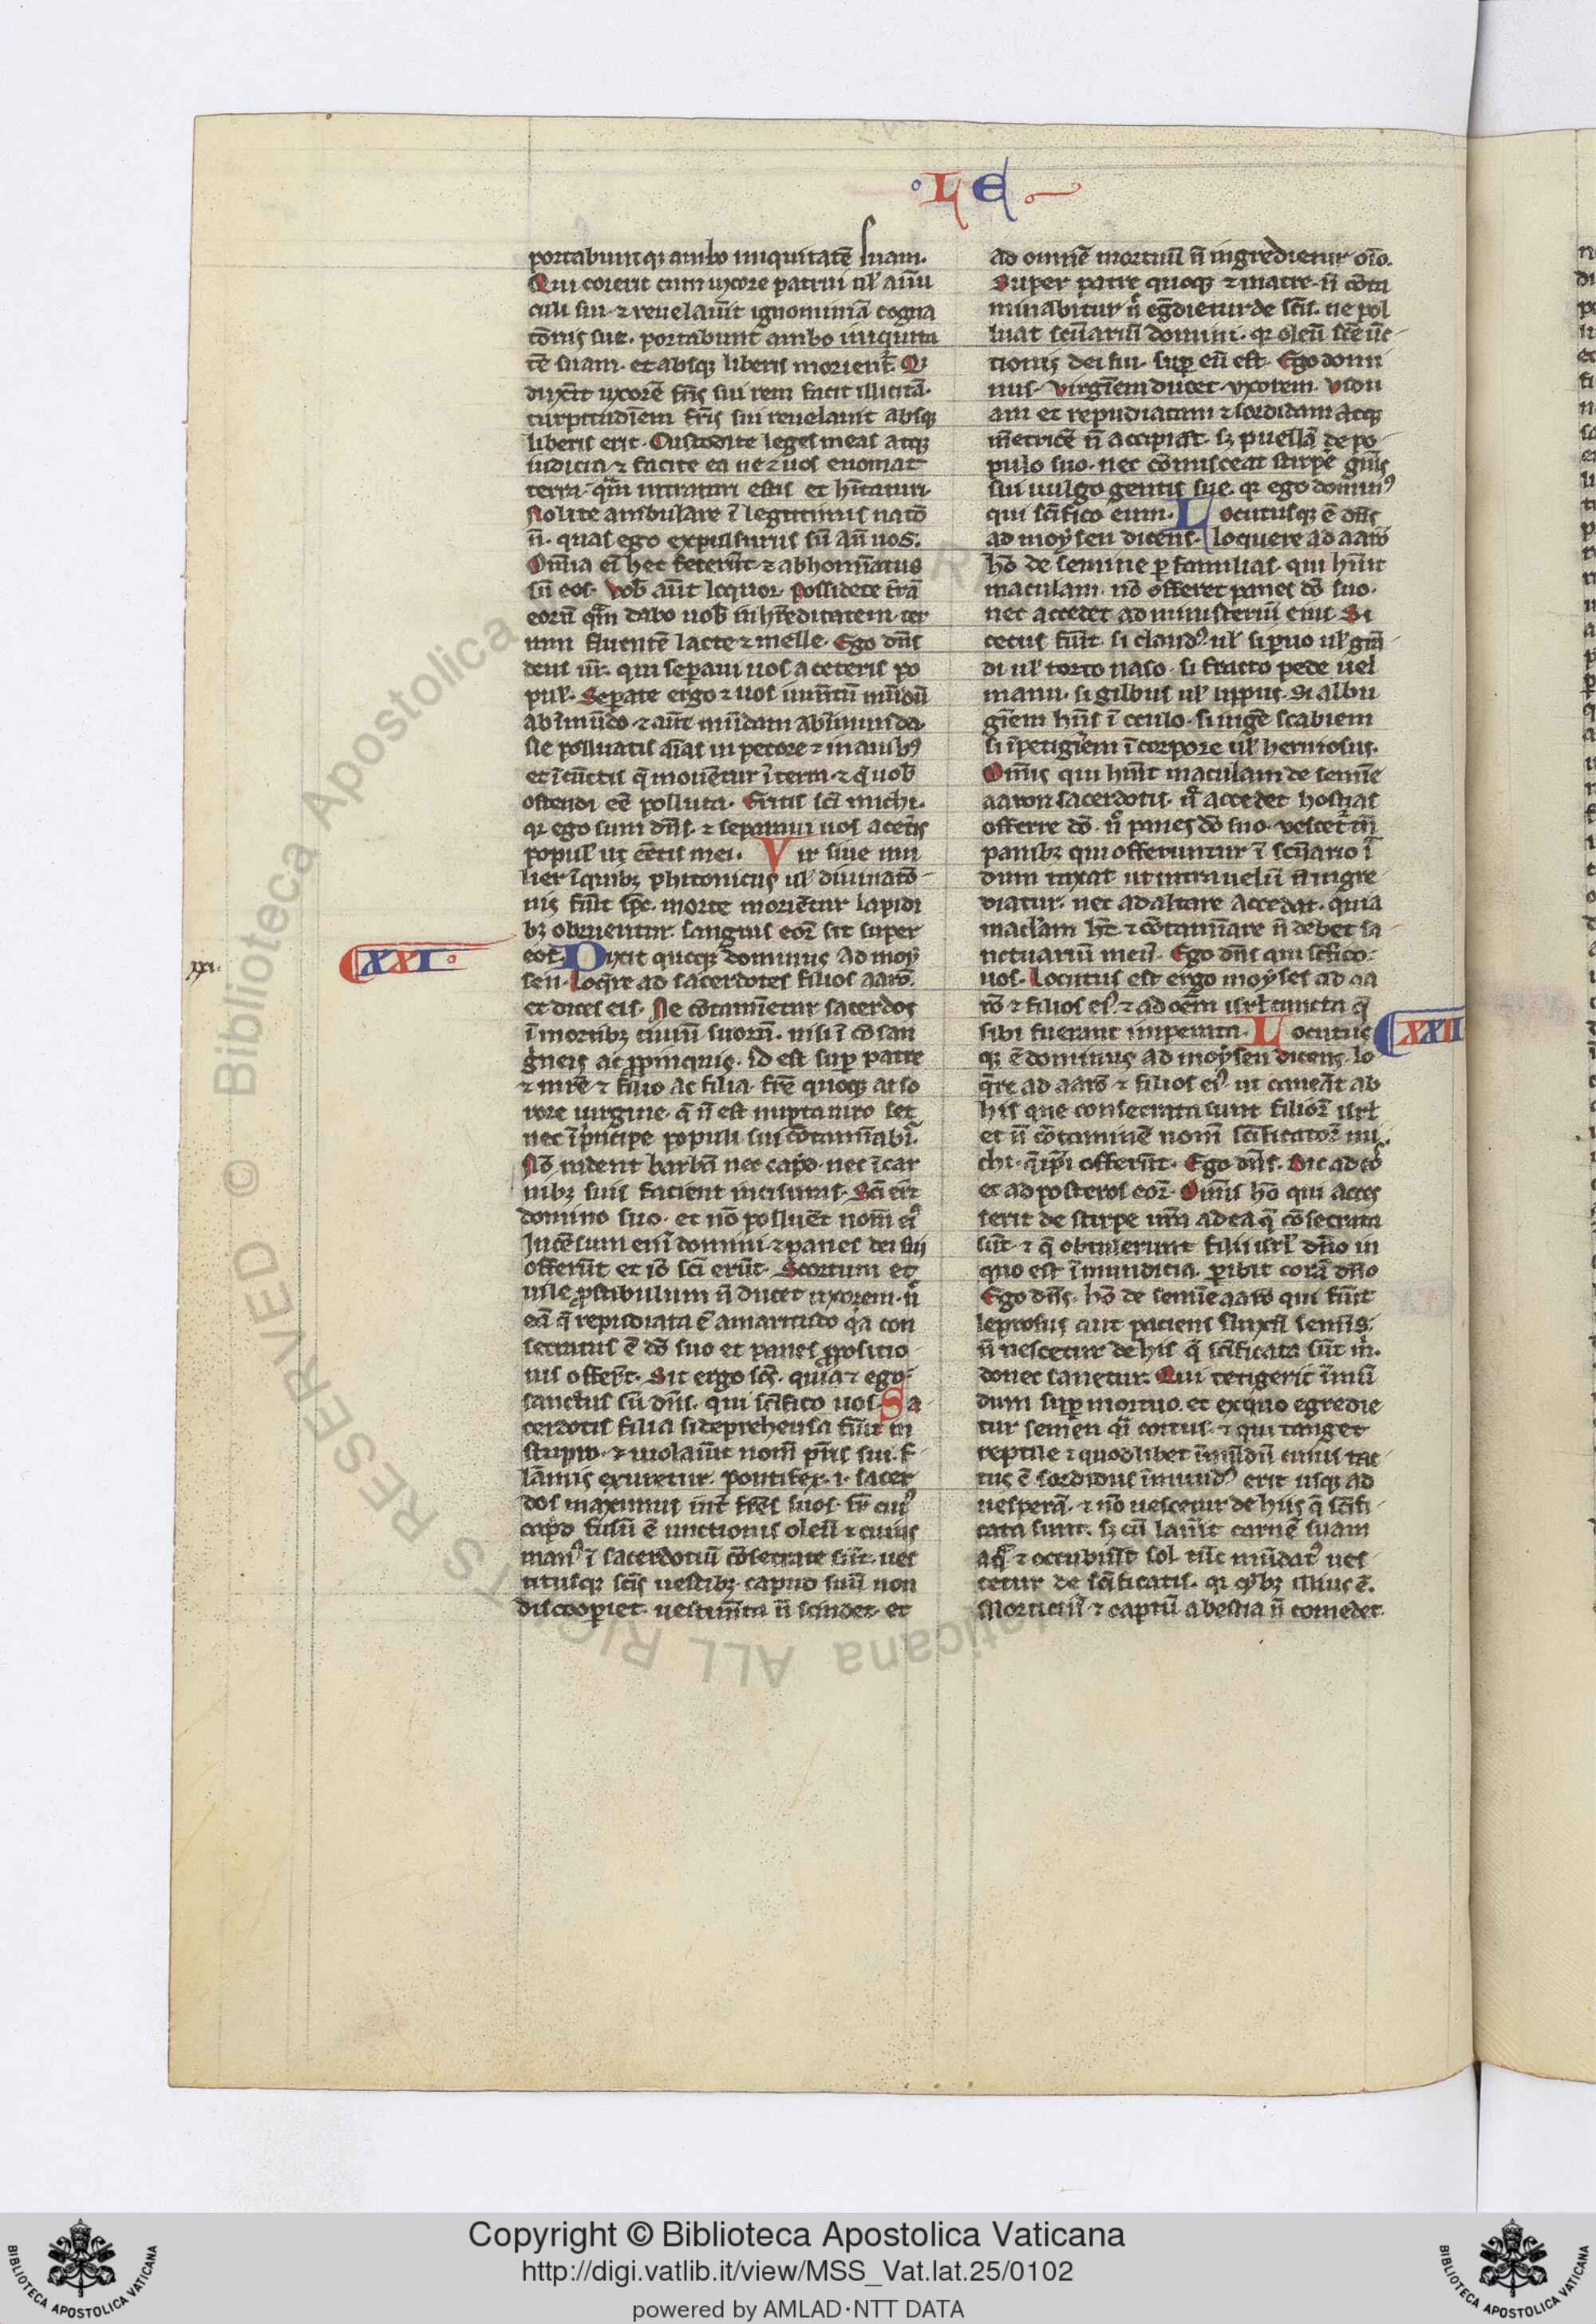 LE
portabuntq₃ ambo iniquitatē suam.
Qui coierit cum uxore patrui ul' auū
culi sui ⁊ reuelau̅it ignominiā cogna
tōnis sue. portabunt ambo iniquita
tē suam. et absq₃ liberis morient̄. Q
duxer̄it uxorē fr̄is sui rem facit illicitā.
turpitudiēm fr̄is sui reuelauit absq₃
liberis erit. Custodite leges meas atq₃
iudicia ⁊ facite ea ne ⁊ uos euomat
terra. q̄m intraturi estis et hītaturi.
Nolite ambulare ī legitimis natō
n̄. quas ego expulsurus sū an̄ uos.
Om̄ia ei̅ hec fecerūt ⁊ abhominatus
sū eos. Vob̄ aūt loquor. possidete t̄rā
eorū q̄m dabo uob̄ in hr̄editatem. ter
ram fluentē lacte ⁊ melle. Ego dn̄s
deus ur̄. qui sepaui uos a ceteris po
pul'. Separate ergo ⁊ uos iumentū mūdū
ab īmūdo. ⁊ auē mūdam ab īmunda.
Ne polluatis aīas in pecore ⁊ in auib₃
et ī cūctis q̄ mouētur ī terra. ⁊ q̄ uob̄
ostendi eē polluta. Eritis sc̄i michi.
qr ego sum dn̄s. ⁊ separaui uos a cet̄is
popul' ut eētis mei. Vir siue mu
lier ī quib₃ phitonicus ul' diuinatō
nis fūit sp̄c. morte moriētur lapidi
b₃ obruentur. sanguis eoꝝ sit super
XXI
xxi.
eos. Dixit quoq₃ dominus ad moy
sen. Loq̄re ad sacerdotes filios aarō.
et dices eis. Ne cōtamīetur sacerdos
ī mortib₃ ciuiū suorū. nisi ī cōsan
guieis ac ꝓpinquis. id est sup patre
⁊ mr̄e ⁊ filio ac filia. fr̄e quoq₃ at so
rore uirgine. q̄ n̄ est nupta uiro set
nec ī p̄ncipe populi sui cōtamīabit̄.
Nō radent barbā nec capd. nec ī car
nib₃ suis facient incisuras. Sc̄i er̄t
domino suo. et nō polluēt nom̄ ei⁹
Incēsum enī domini ⁊ panes dei sui
offerūt et iō sc̄i erūt. Scortum et
uile ꝓstibulum n̄ ducet uxorem. n̄
eā q̄ repudiata ē a marito q̇a con
secratus ē dō suo et panes ꝓpositio
nis offer̄t. Sit ergo sc̄s. quia ⁊ ego
sanctus sū dn̄s. qui sc̄ifico uos. Sa
cerdotis filia si deprehensa fūit in
stupro. ⁊ uiolau̅it nom̄ pr̄is sui. f
lāmis exuretur. Pontifex .i. sacer
dos maximus int̄ fr̄es suos. sr̄ cui⁹
capd fusū ē unctionis oleū ⁊ cuius
man⁹ ī sacerdotiū cōsecrate sūt. ues
titusq₃ sc̄is uestib₃. capud suū non
discoopiet. uestimn̄ta n̄ scindet. et
ad omnē mortuū n̄ ingredietur oīo.
Super patre quoq₃ ⁊ matre. n̄ cōta
minabitur. n̄ eg̅dietur de sc̄is. ne pol
luat sc̄uariū domini. qr oleū sc̄e ūc
tionis dei sui. sup eū est. Ego domi
nus. Virgiēm ducet uxorem. Vidu
am et repudiatam ⁊ sordidam atq₃
mētricē n̄ accipiat. s₃ puellā de po
pulo suo. nec cōmisceat stirpē gn̄is
sui uulgo gentis sue. qr ego domin⁹
qui sc̄ifico eum. Locutusq₃ ē dn̄s
ad moysen dicens. loquere ad aarō
hō de semine p familias. qui hūit
maculam. nō offeret panes dō suo.
nec accedet ad ministeriū eius. Si
cecus fūit. si claud⁹. ul' si paruo ul' grā
di ul' torto naso. si fracto pede uel
manu. si gilbus ul' lippus. si albu
giēm hn̄s ī oculo. si iugē scabiem
si īpetigiēm ī corpore ul' herniosus.
Omīs qui hūit maculam de semīe
aaron sacerdotis. n̄ accedet hostias
offerre dō. n̄ panes dō suo. uescet̄ tn̄
panib₃ qui offeruntur ī sc̄uario ī
dum taxat ut intra uelū n̄ ingre
diatur. nec ad altare accedat. quia
macl'am ht̄ ⁊ cōtamīare n̄ debet sa
nctuariū meū. Ego dn̄s qui sc̄ifico
uos. Locutus est ergo moyses ad aa
rō ⁊ filios ei⁹ ⁊ ad oēm isrl' cuncta q̄
sibi fuerant imperata. Locutus
XXII
q₃ ē dominus ad moysen dicens. lo
q̄re ad aarō ⁊ filios ei⁹ ut caueāt ab
his que consecrata sunt filioꝝ isrl'
et n̄ cōtaminē nom̄ sc̄ificatoꝝ mi
chi. q̄ ip̄i offerūt. Ego dn̄s. Dic ad eō
et ad posteros eoꝝ. Omīs hō qui acces
serit de stirpe ur̄a ad ea q̄ cōsecrata
sūt. ⁊ q̄ obtulerunt filii isrl' dn̄o in
quo est īmundicia. pibit corā dn̄o
Ego dn̄s. hō de semīe aarō qui fūit
leprosus aut paciens fluxū semīs.
n̄ uescetur de his q̄ sc̄ificata sūt m̄.
donec sanetur. Qui tetigerit īmū
dum sup mortuo. et ex quo egredie
tur semen q̄i coitus. ⁊ qui tanget
reptile ⁊ quodlibet īmūdū cuius tac
tus ē sordidus īmund⁹ erit usq₃ ad
uesperā. ⁊ nō uescetur de hiis q̄ sc̄ifi
cata sunt. s₃ cū lau̅it carnē suam
aq̄ ⁊ occubūit sol tūc mūdat⁹ ues
cetur de sc̄ificatis. qr cyb₃ illius ē.
Morticinū ⁊ captū a bestia n̄ comedet.
Copyright © Biblioteca Apostolica Vaticana
http://digi.vatlib.it/view/MSS_Vat.lat.25/0102
powered by AMLAD·NTT DATA
BIBLIOTECA APOSTOLICA VATICANA
BIBLIOTECA APOSTOLICA VATICANA